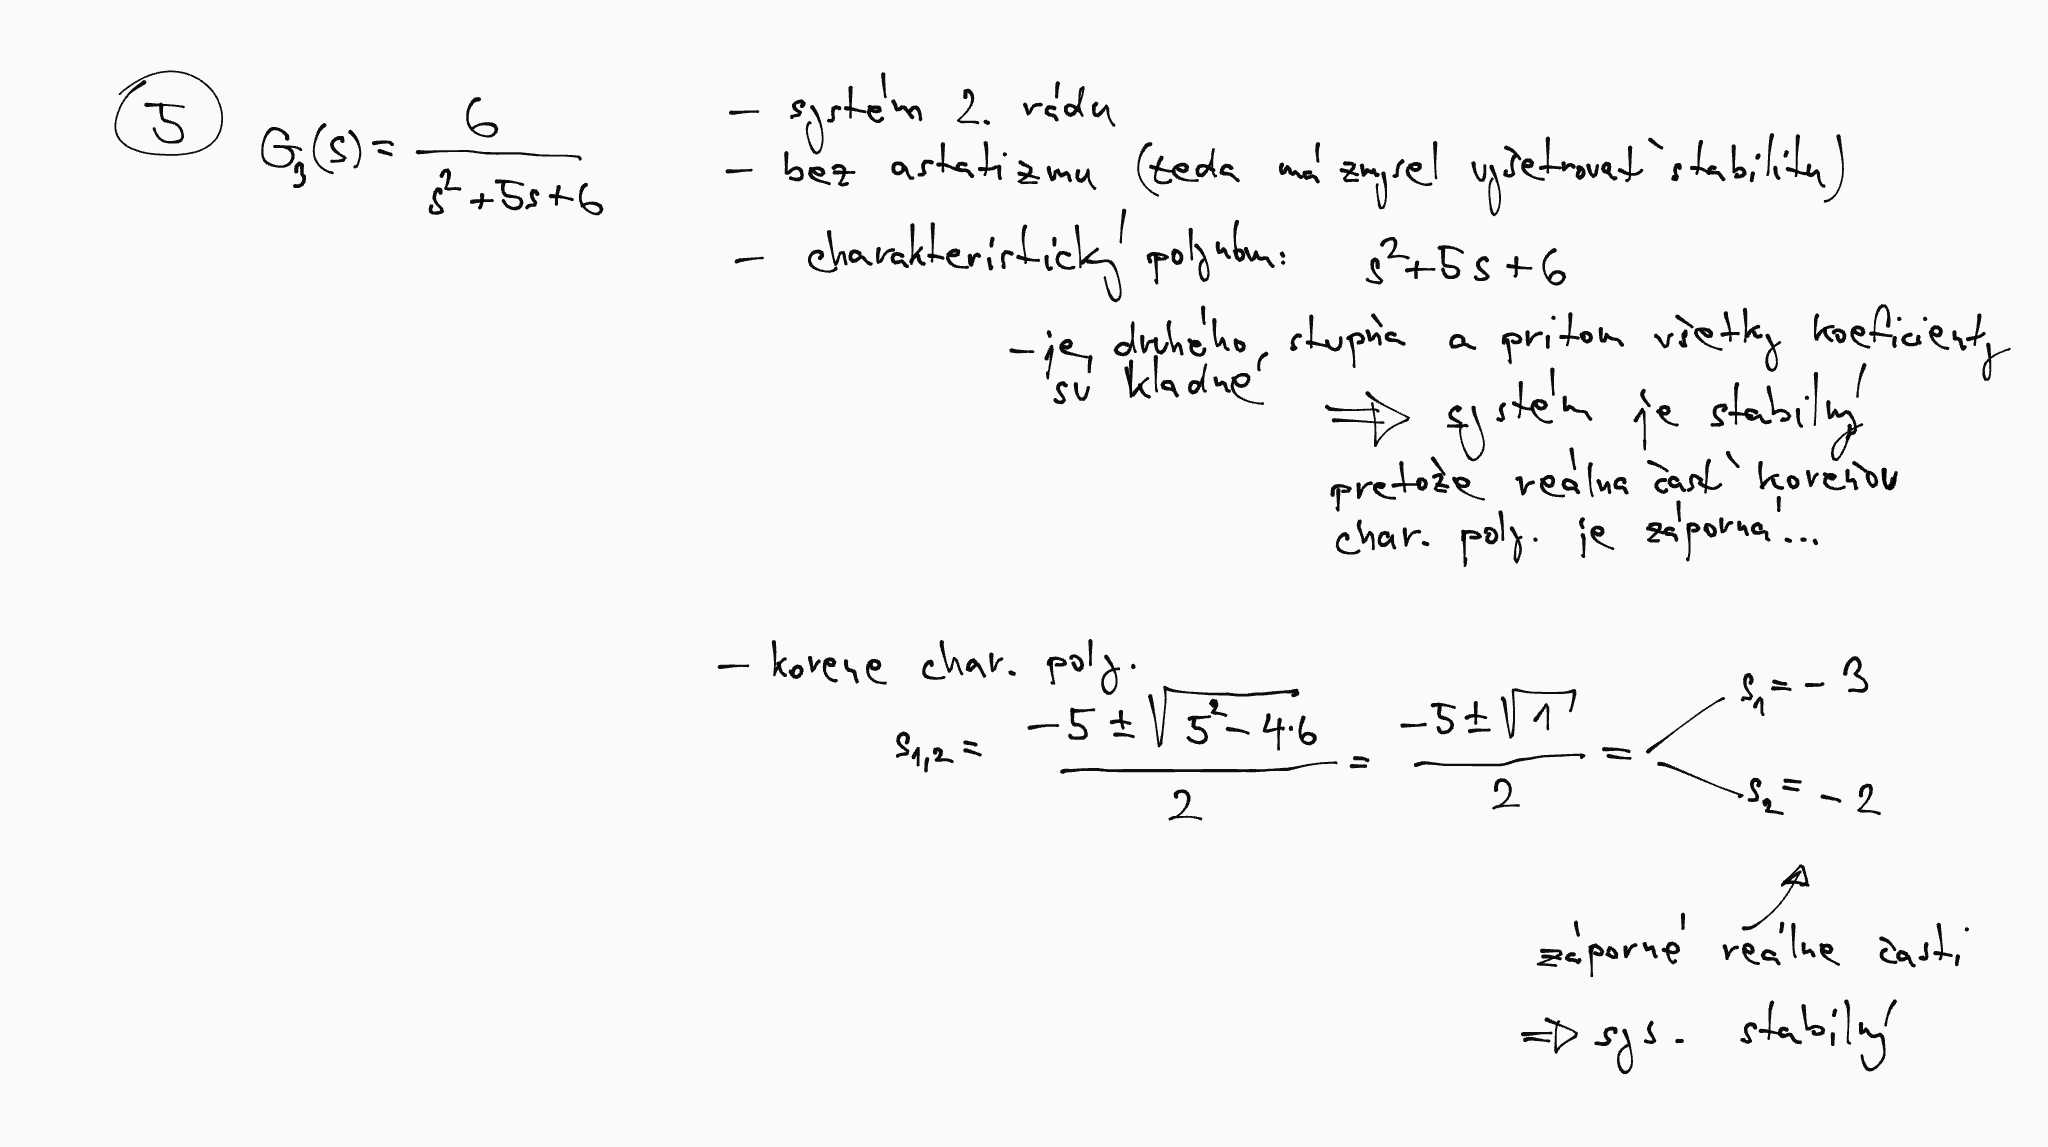 5 G₃(s) = 6 / (s² + 5s + 6)
– systém 2. rádu
– bez astatizmu (teda má zmysel vyšetrovať stabilitu)
– charakteristický polynóm: s² + 5s + 6
– je druhého stupňa a pritom všetky koeficienty
sú kladné
⇒ systém je stabilný
pretože reálna časť koreňov
char. poly. je záporná...
– korene char. poly.
s₁,₂ = (–5 ± √(5² – 4·6)) / 2 = (–5 ± √1) / 2 =
s₁ = – 3
s₂ = – 2
záporné reálne časti
⇒ sys. stabilný